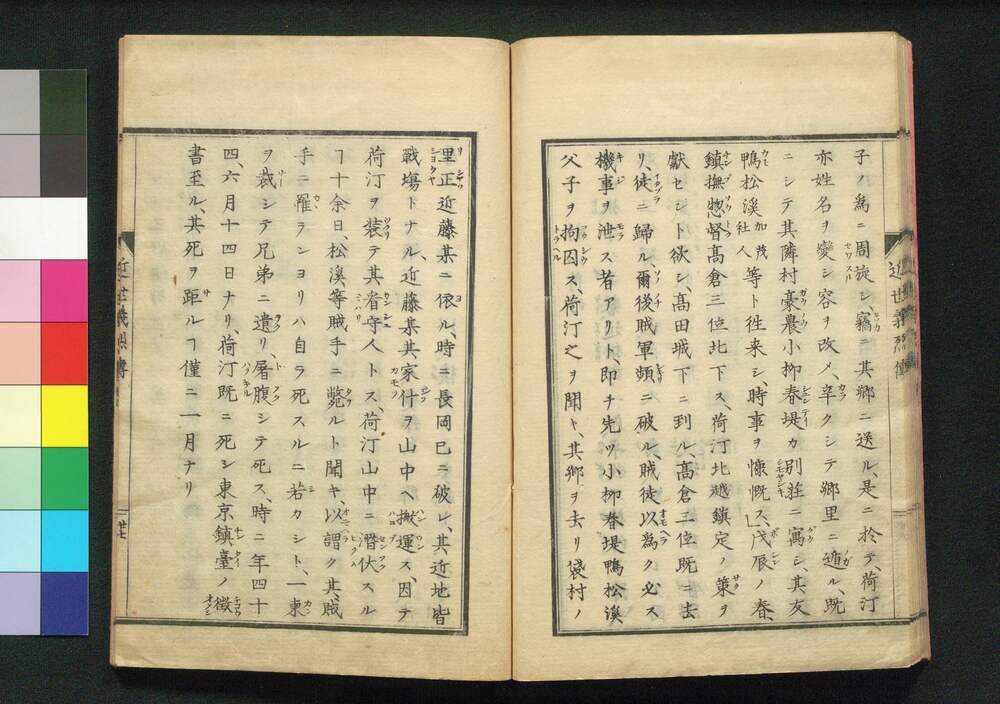 子ノ為ニ周旋シ、竊ニ其郷ニ送ル是ニ於テ、荷汀
亦姓名ヲ変シ容ヲ改メ、辛クシテ郷里ニ遁ル、既
ニシテ其隣村豪農小柳春堤カ別荘ニ寓シ、其友
鴨松溪加茂社人等ト徃来シ、時事ヲ慷慨ス」戊辰ノ春、
鎮撫惣督高倉三位北下ス、荷汀北越鎮定ノ策ヲ
獻セント欲シ、高田城下ニ到ル、高倉三位既ニ去
リ、徒ニ歸ル、爾後賊軍頻ニ破ル、賊徒以為ク必ス
機事ヲ泄ス者アリト、即チ先ツ小柳春堤鴨松溪
父子ヲ拘囚ス、荷汀之ヲ聞キ、其郷ヲ去リ袋村ノ
近世義烈傳
里正近藤某ニ依ル、時ニ長岡已ニ破レ、其近地皆
戰塲トナル、近藤某其家什ヲ山中ヘ搬運ス、因テ
荷汀ヲ装テ其看守人トス、荷汀山中ニ潜伏スル
ヿ十余日、松溪等賊手ニ斃ルト聞キ、以謂ク其賊
手ニ罹ランヨリハ自ラ死スルニ若カシト、一柬
ヲ裁シテ兄弟ニ遺リ、屠腹シテ死ス、時ニ年四十
四、六月十四日ナリ、荷汀既ニ死シ東京鎮臺ノ徴
書至ル、其死ヲ距ルヿ僅ニ一月ナリ
近世義烈傳
廿七